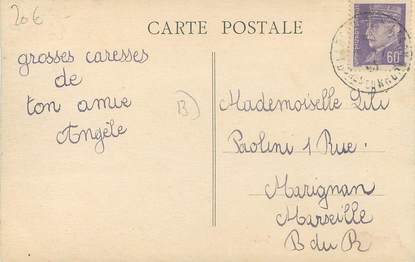 20€
CARTE POSTALE
grosses caresses
de
ton amie
Angèle
B)
Mademoiselle Lili
Paolini 1 Rue
Marignan
Marseille
B du R
60